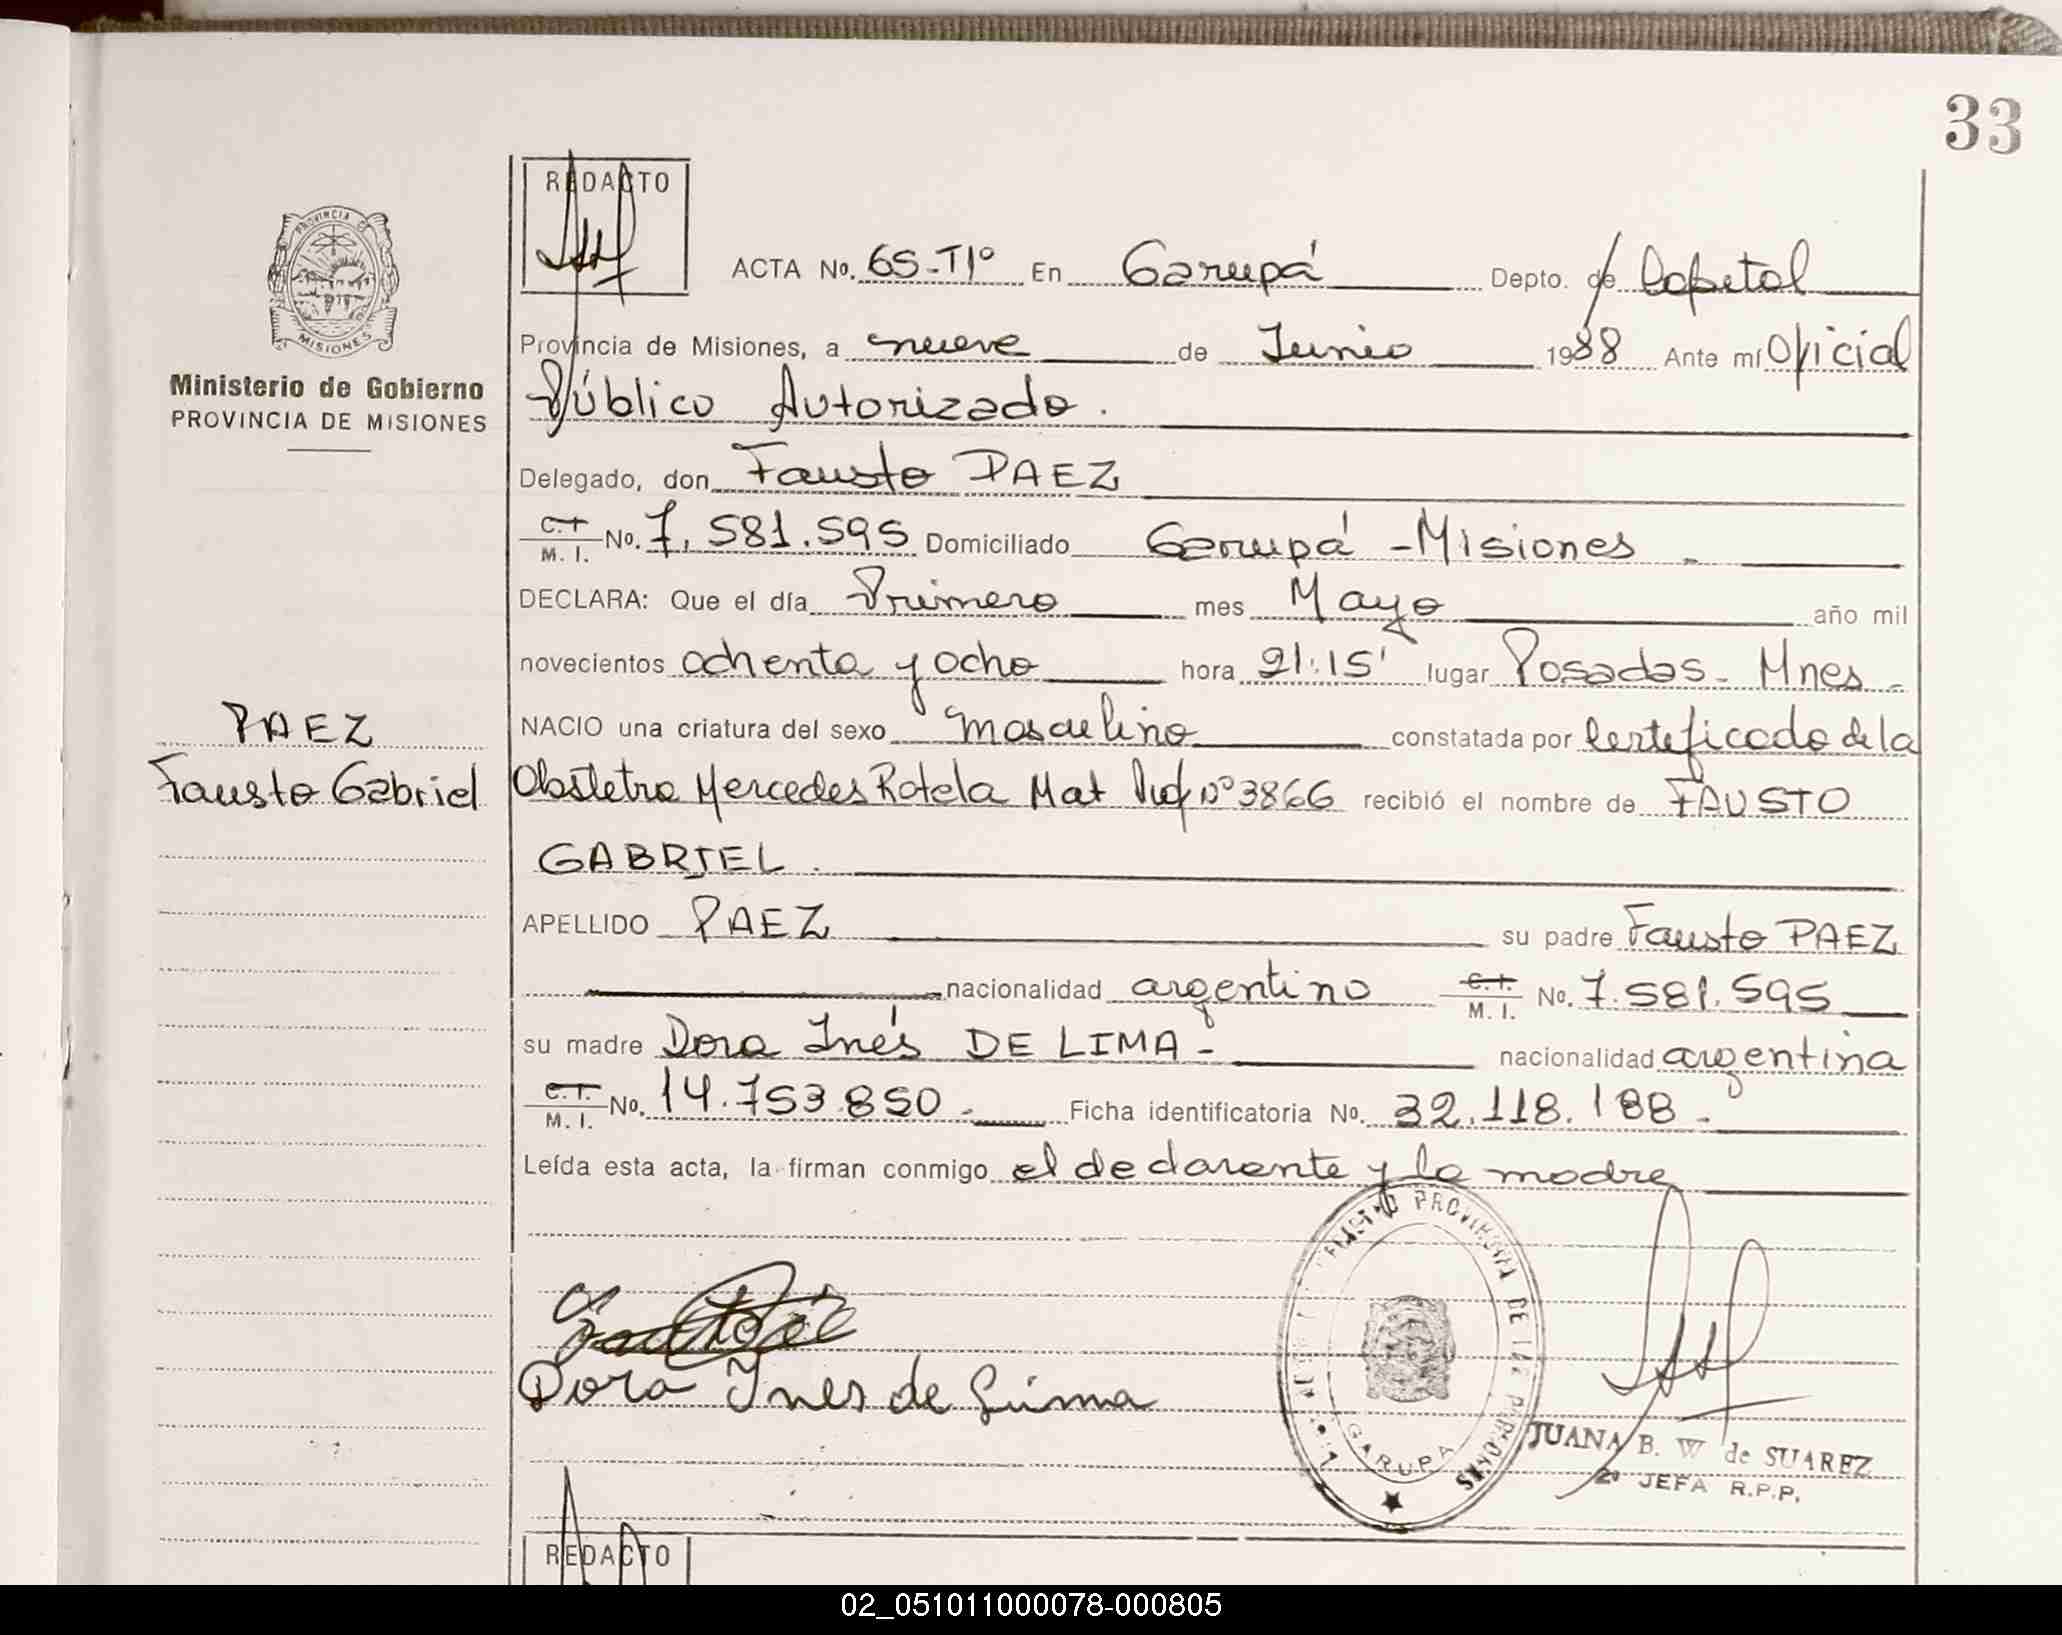 33
REDACTO
PROVINCIA DE
MISIONES
Ministerio de Gobierno
PROVINCIA DE MISIONES
ACTA No. 65-TIº En Garupá Depto. de Capital
Provincia de Misiones, a nueve de Junio 1988 Ante mí Oficial
Público Autorizado.
Delegado, don Fausto PAEZ
C.I. M. I. No. 7.581.595 Domiciliado Garupá - Misiones
DECLARA: Que el día Primero mes Mayo año mil
novecientos ochenta y ocho hora 21:15' lugar Posadas - Mnes -
NACIO una criatura del sexo masculino constatada por Certificado de la
PAEZ
Fausto Gabriel
Obstetra Mercedes Rotela Mat Prof Nº 3866 recibió el nombre de FAUSTO
GABRIEL.
APELLIDO PAEZ su padre Fausto PAEZ
nacionalidad argentino C.I. M. I. No. 7.581.595
su madre Dora Inés DE LIMA - nacionalidad argentina
C.I. M. I. No. 14.753.850 - Ficha identificatoria No. 32.118.188 -
Leída esta acta, la firman conmigo el declarante y la madre
PROVINCIAL DE LAS PERSONAS
GARUPA
Dora Ines de Lima
JUANA B. W de SUAREZ
2º JEFA R.P.P.
REDACTO
02_051011000078-000805